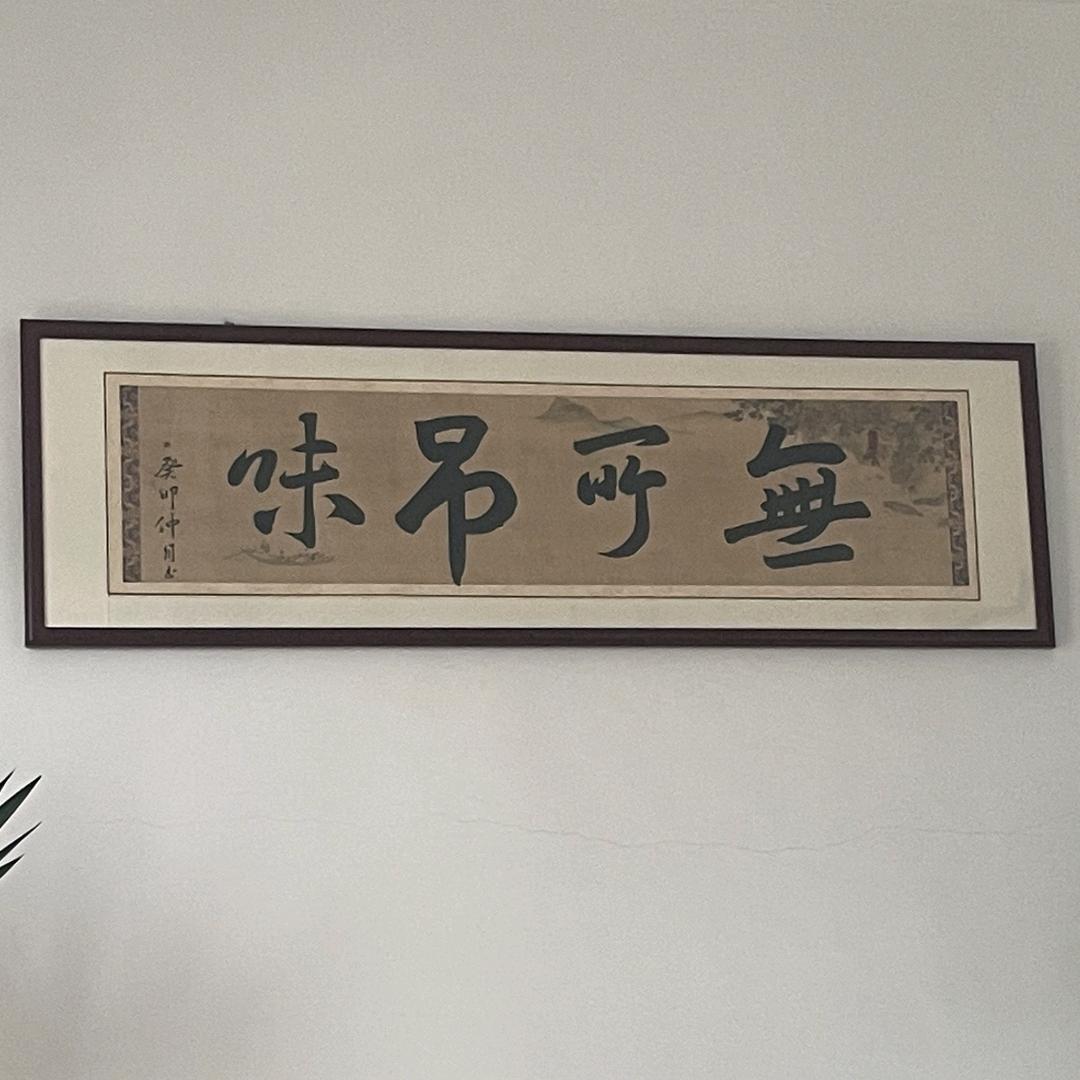 無所吊味
癸卯仲月